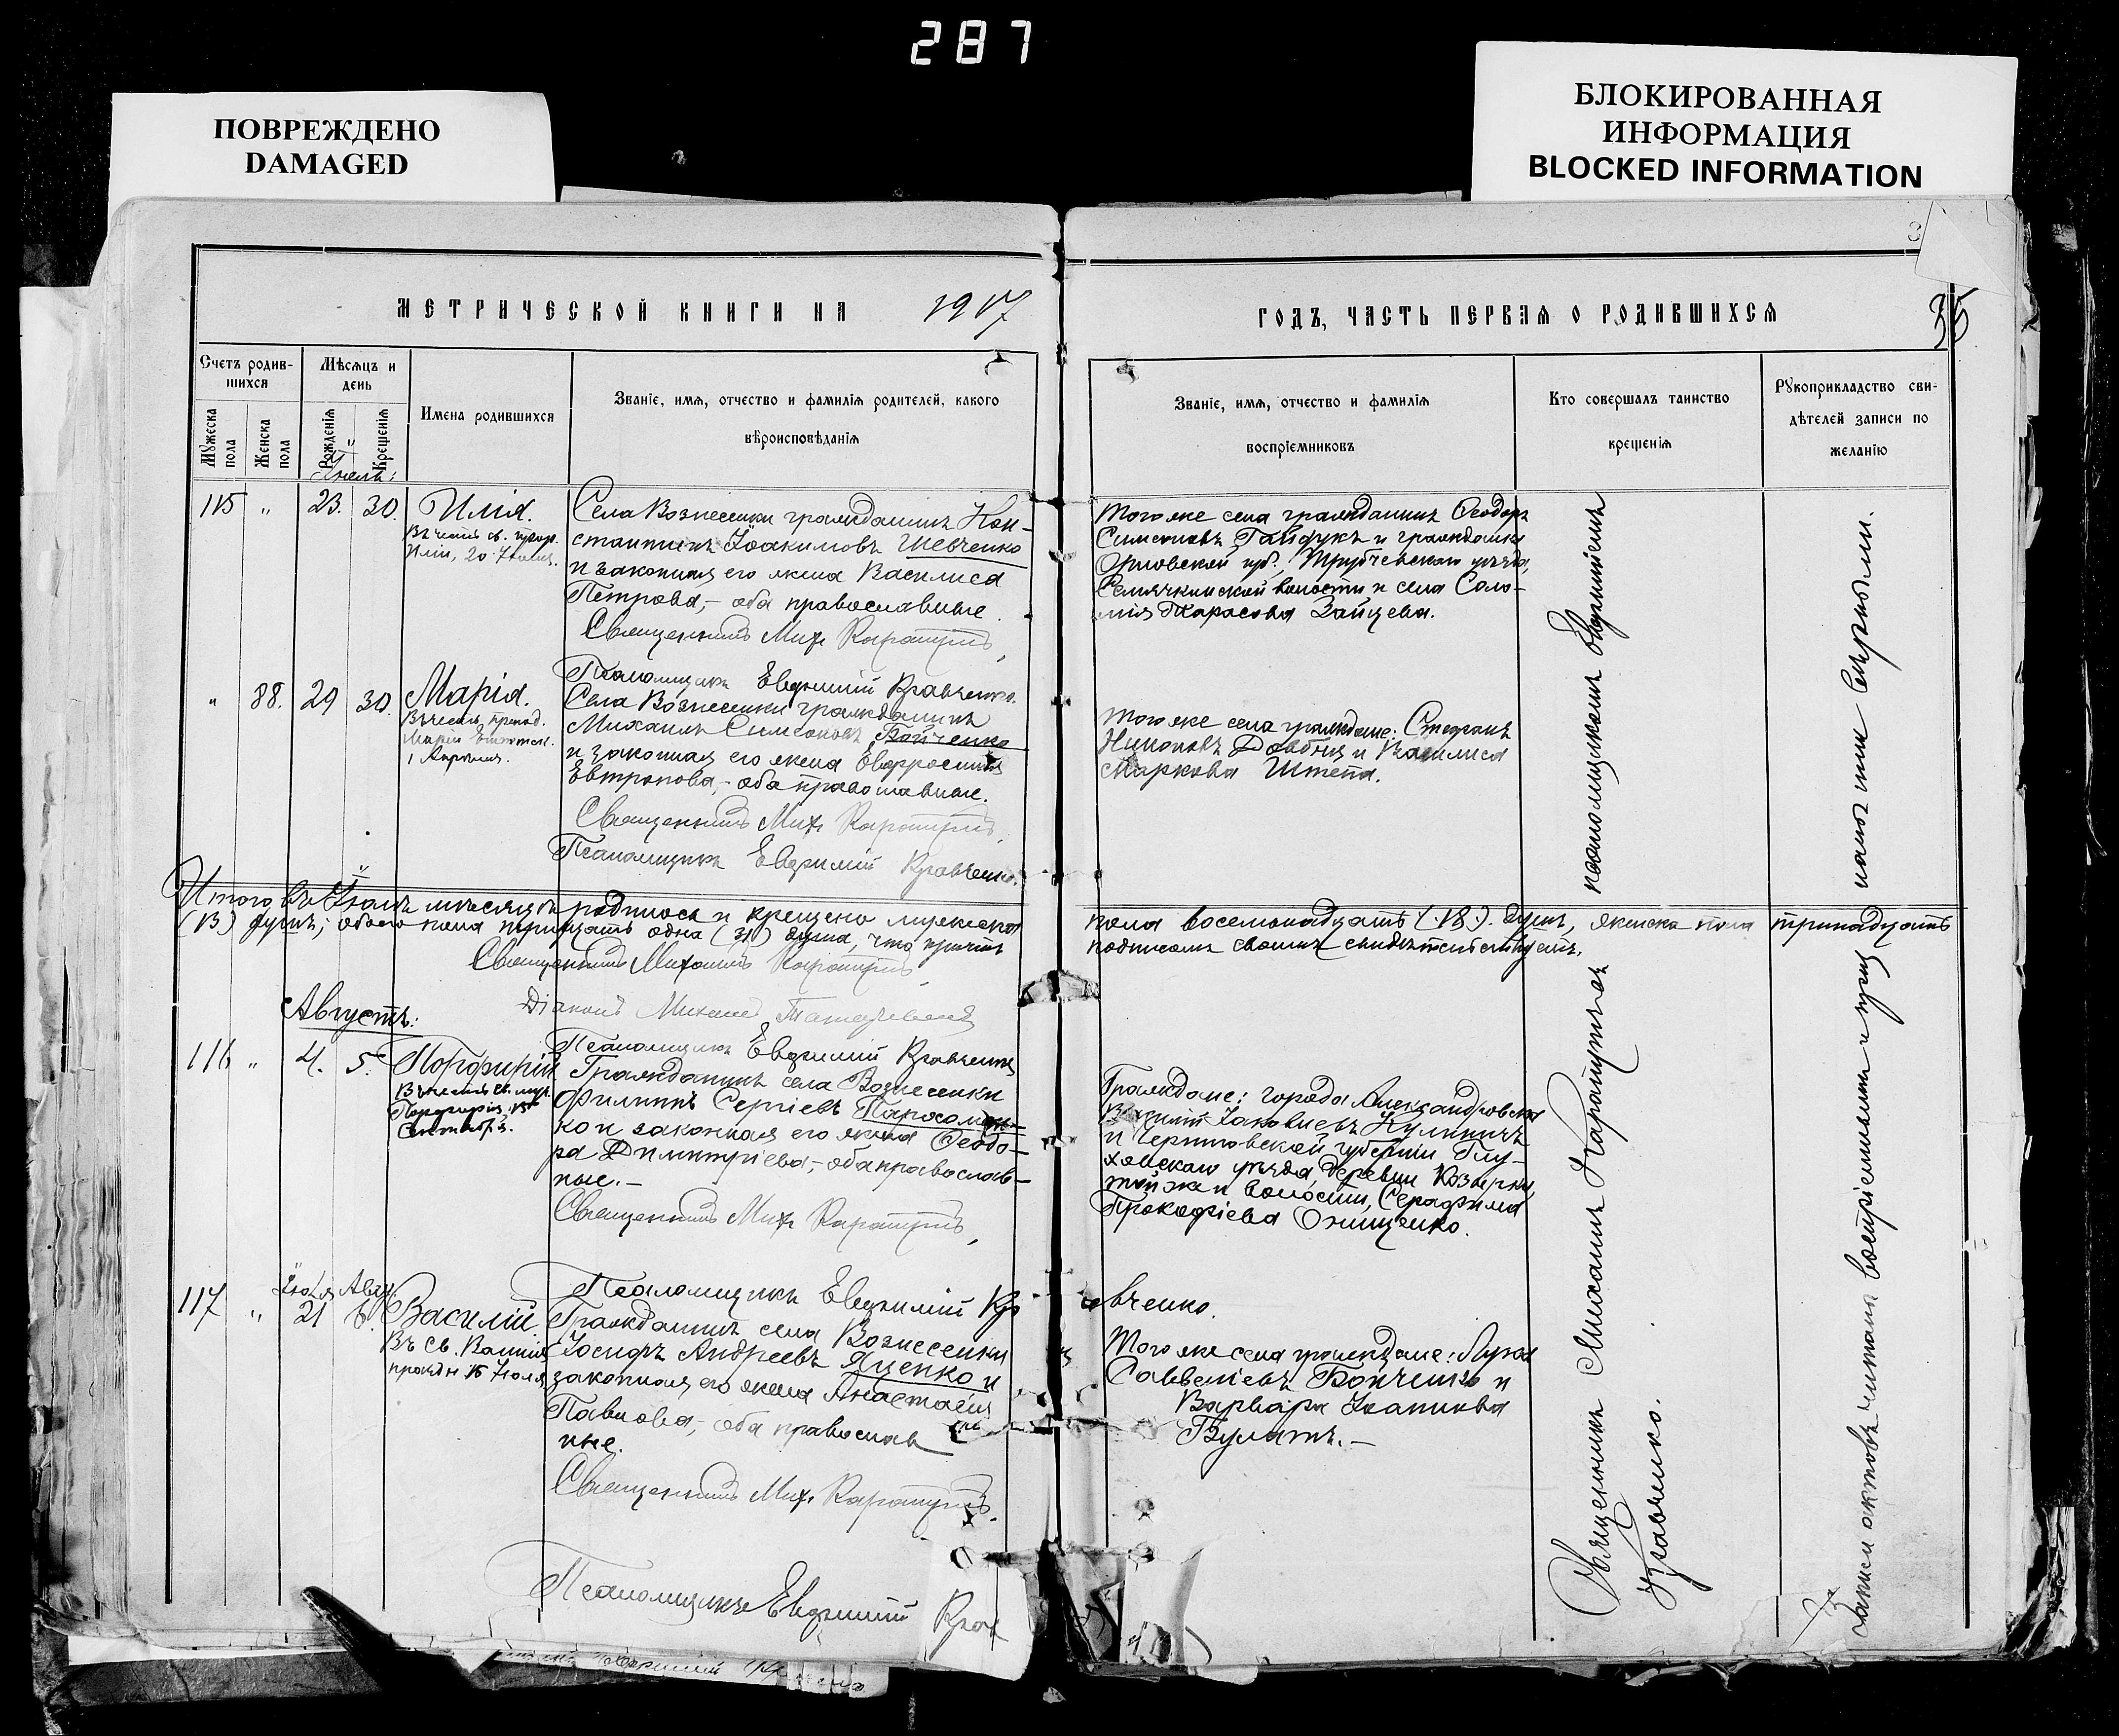 287
ПОВРЕЖДЕНО
DAMAGED
БЛОКИРОВАННАЯ
ИНФОРМАЦИЯ
BLOCKED INFORMATION
МЕТРИЧЕСКОЙ КНИГИ НА 1917
Счетъ родив-
шихся
Мѣсяцъ и
день
Мужеска
пола
Женска
пола
Рожденія
Крещенія
Имена родившихся
Званіе, имя, отчество и фамилія родителей, какого
вѣроисповѣданія
115 " 23. 30. Илія.
Въ честь св. прор.
Иліи, 20 Іюля.
Села Вознесенки гражданинъ Кон-
стантинъ Іоакимовъ Шевченко
и законная его жена Василиса
Петрова, - оба православные.
Священникъ Мих.
Псаломщикъ Евфимій Кравченко.
" 88. 29 30. Марія.
Въ честь препод.
Маріи Египетск.
1 Апрѣля.
Села Вознесенки гражданинъ
Михаилъ Симеоновъ Бойченко
и законная его жена Евфросинія
Евтропова, - оба православные.
Священникъ Мих.
Псаломщикъ Евфимій Кравченко.
Итого въ Іюлѣ мѣсяцѣ родилось и крещено мужеска
(13) душъ; обоего пола тридцать одна (31) душа, что причтъ
Священникъ Михаилъ
Діаконъ Михаилъ
Августъ:
Псаломщикъ Евфимій Кравченко
116 " 4. 5. Порфирій
Въ честь св. муч.
Порфирія, 15
Сентября.
Гражданинъ села Вознесенки
Филиппъ Сергіевъ Пархомен-
ко и законная его жена Ѳеодо-
ра Димитріева, - оба православ-
ные. -
Священникъ Мих.
Псаломщикъ Евфимій Кра
117 " Іюля 21 Авг. 6. Василій.
Въ св.
15 Іюля
Гражданинъ села Вознесенки
Іосифъ Андреевъ Яценко и
законная его жена Анастасія
Павлова, - оба православ
ные.
Священникъ Мих.
Псаломщикъ Евфимій Крав
ГОДЪ, ЧАСТЬ ПЕРВАЯ О РОДИВШИХСЯ
35
Званіе, имя, отчество и фамилія
воспріемниковъ
Кто совершалъ таинство
крещенія
Рукоприкладство сви-
дѣтелей записи по
желанію
Того же села гражданинъ Ѳеодоръ
Симеоновъ Гайдукъ и гражданка
Орловской губ., Трубчевскаго уѣзда,
волости и села Соло-
мія Тарасова Зайцева.
Того же села граждане: Стефанъ
Никоновъ Довбня и Василиса
Маркова Штепа.
пола восемнадцать (18). душъ, женска пола тринадцать
подписомъ своимъ свидѣтельствуетъ.
Граждане: города Александровска
Іаковлевъ Куличъ
и Черниговской губерніи Глу-
ховскаго уѣзда, деревни
той же и волости, Серафима
Прокофіева Онищенко.
вченко.
Того же села граждане: Лука
Савельевъ Бойченко и
Варвара Іоаннова
Булатъ. -
Священникъ Михаилъ
псаломщикомъ Евфиміемъ
Кравченко.
Записи актовъ читаны воспріемниками